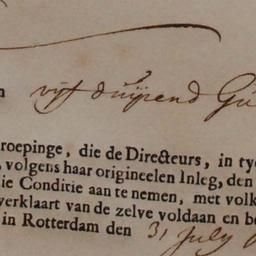 n vijf duijsend Gu
roepinge, die de Directeurs, in ty
, volgens haar origineelen Inleg, den
ie Conditie aan te nemen, met volk
verklaart van de zelve voldaan en be
in Rotterdam den 31 July